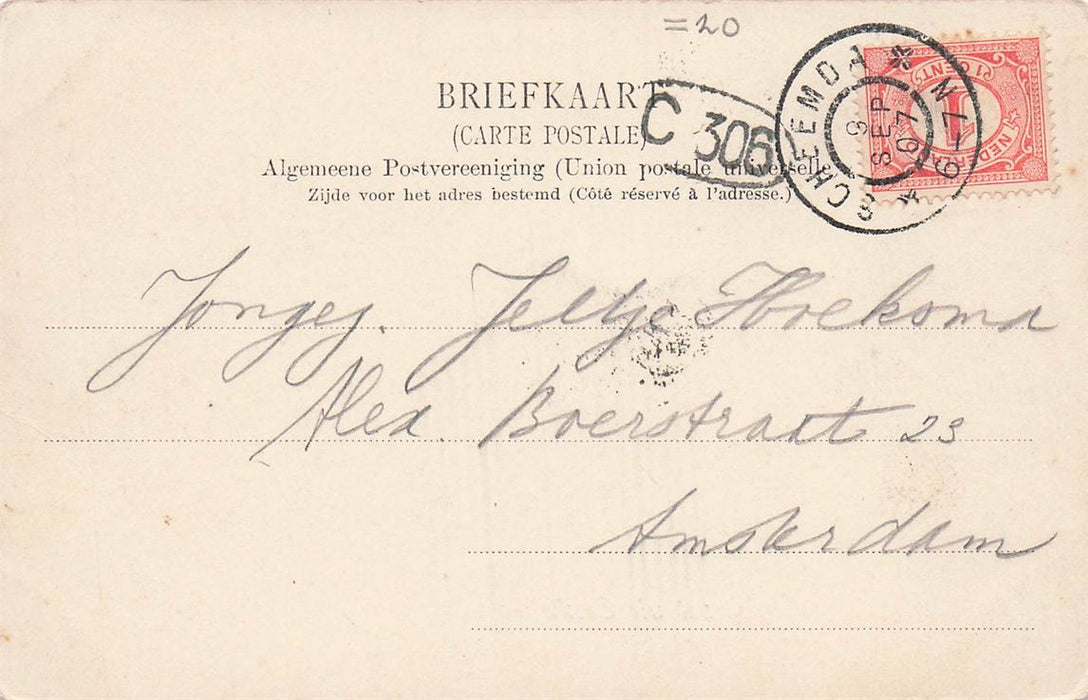 =20
BRIEFKAART
(CARTE POSTALE)
Algemeene Postvereeniging (Union postale universelle)
Zijde voor het adres bestemd (Côté réservé à l'adresse.)
C 306
SCHEEMDA
9 SEP 07
6-7 N
1 CENT
1
NEDERL
Jongej. Jeltje Hoekoma
Alex. Boerstraat 23
Amsterdam